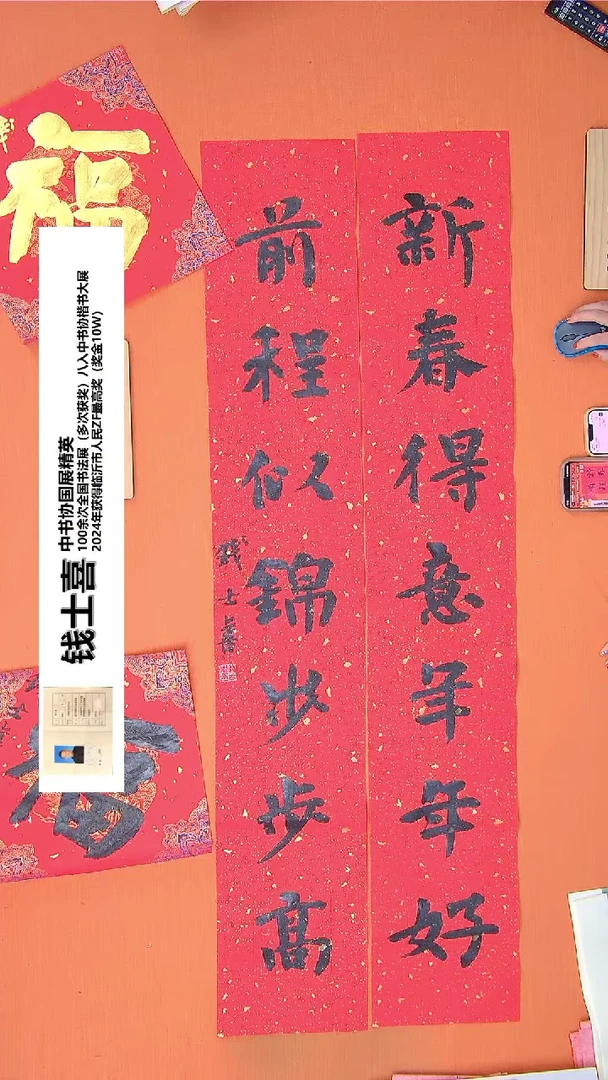 新春得意年年好
前程似錦步步高
钱士喜
福
钱士喜
中书协国展精英
100余次全国书法展（多次获奖）八入中书协楷书大展
2024年获得临沂市人民ZF最高奖（奖金10W）